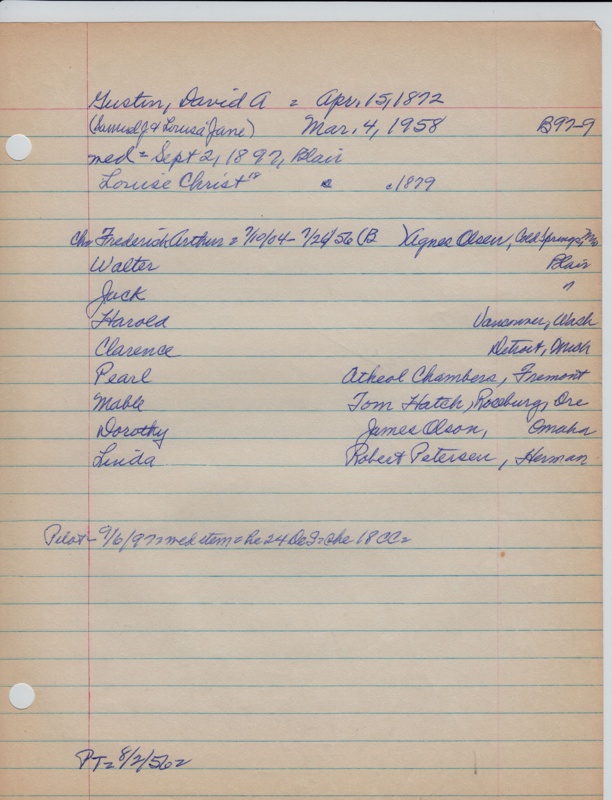 Gustin, David A = Apr. 15, 1872
(Samuel J & Louisa Jane) Mar. 4, 1958 B97-9
med = Sept 2, 1897, Blair
Louise Christ 18 c1879
Chn Frederick Arthur = 7/10/04 - 7/26/56 (B) Agnes Olsen, Cold Springs, Mo
Walter Blair
Jack "
Harold Vancouver, Wash
Clarence Detroit, Mich
Pearl Atheol Chambers, Fremont
Mable Tom Hatch, Roseburg, Ore
Dorothy James Olson, Omaha
Linda Robert Petersen, Herman
Pilot - 9/6/97 = med item = he 24 DeS = she 18 CC =
PT = 8/2/56 =